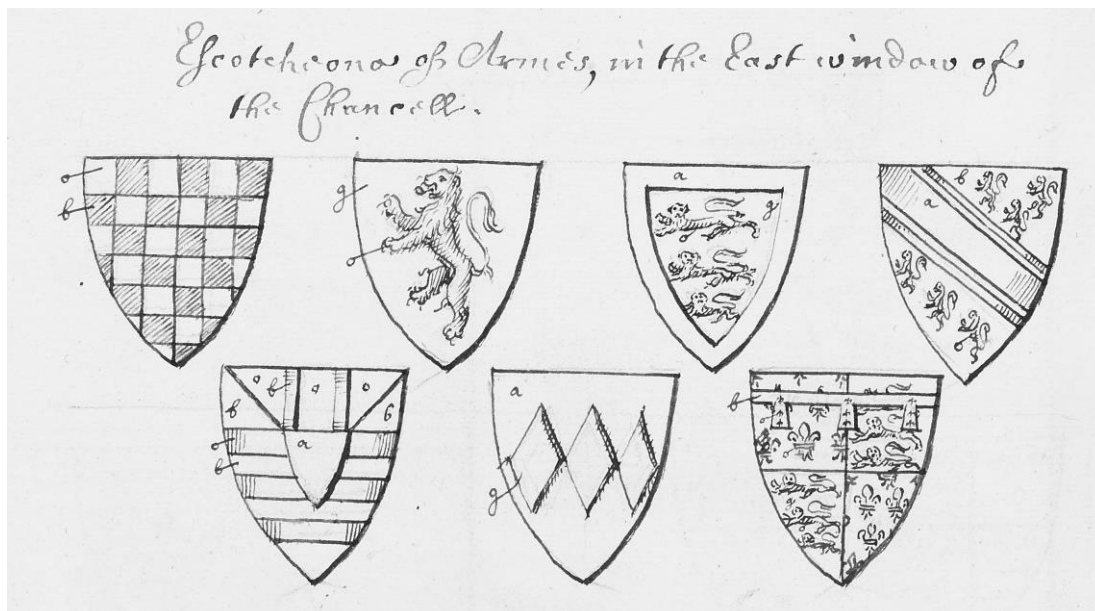 Escotcheons of Armes, in the East window of
the Chancell.
o
b
g
o
a
g
o
b
a
o
o
b
o
o
b
b
a
o
b
a
g
b
o